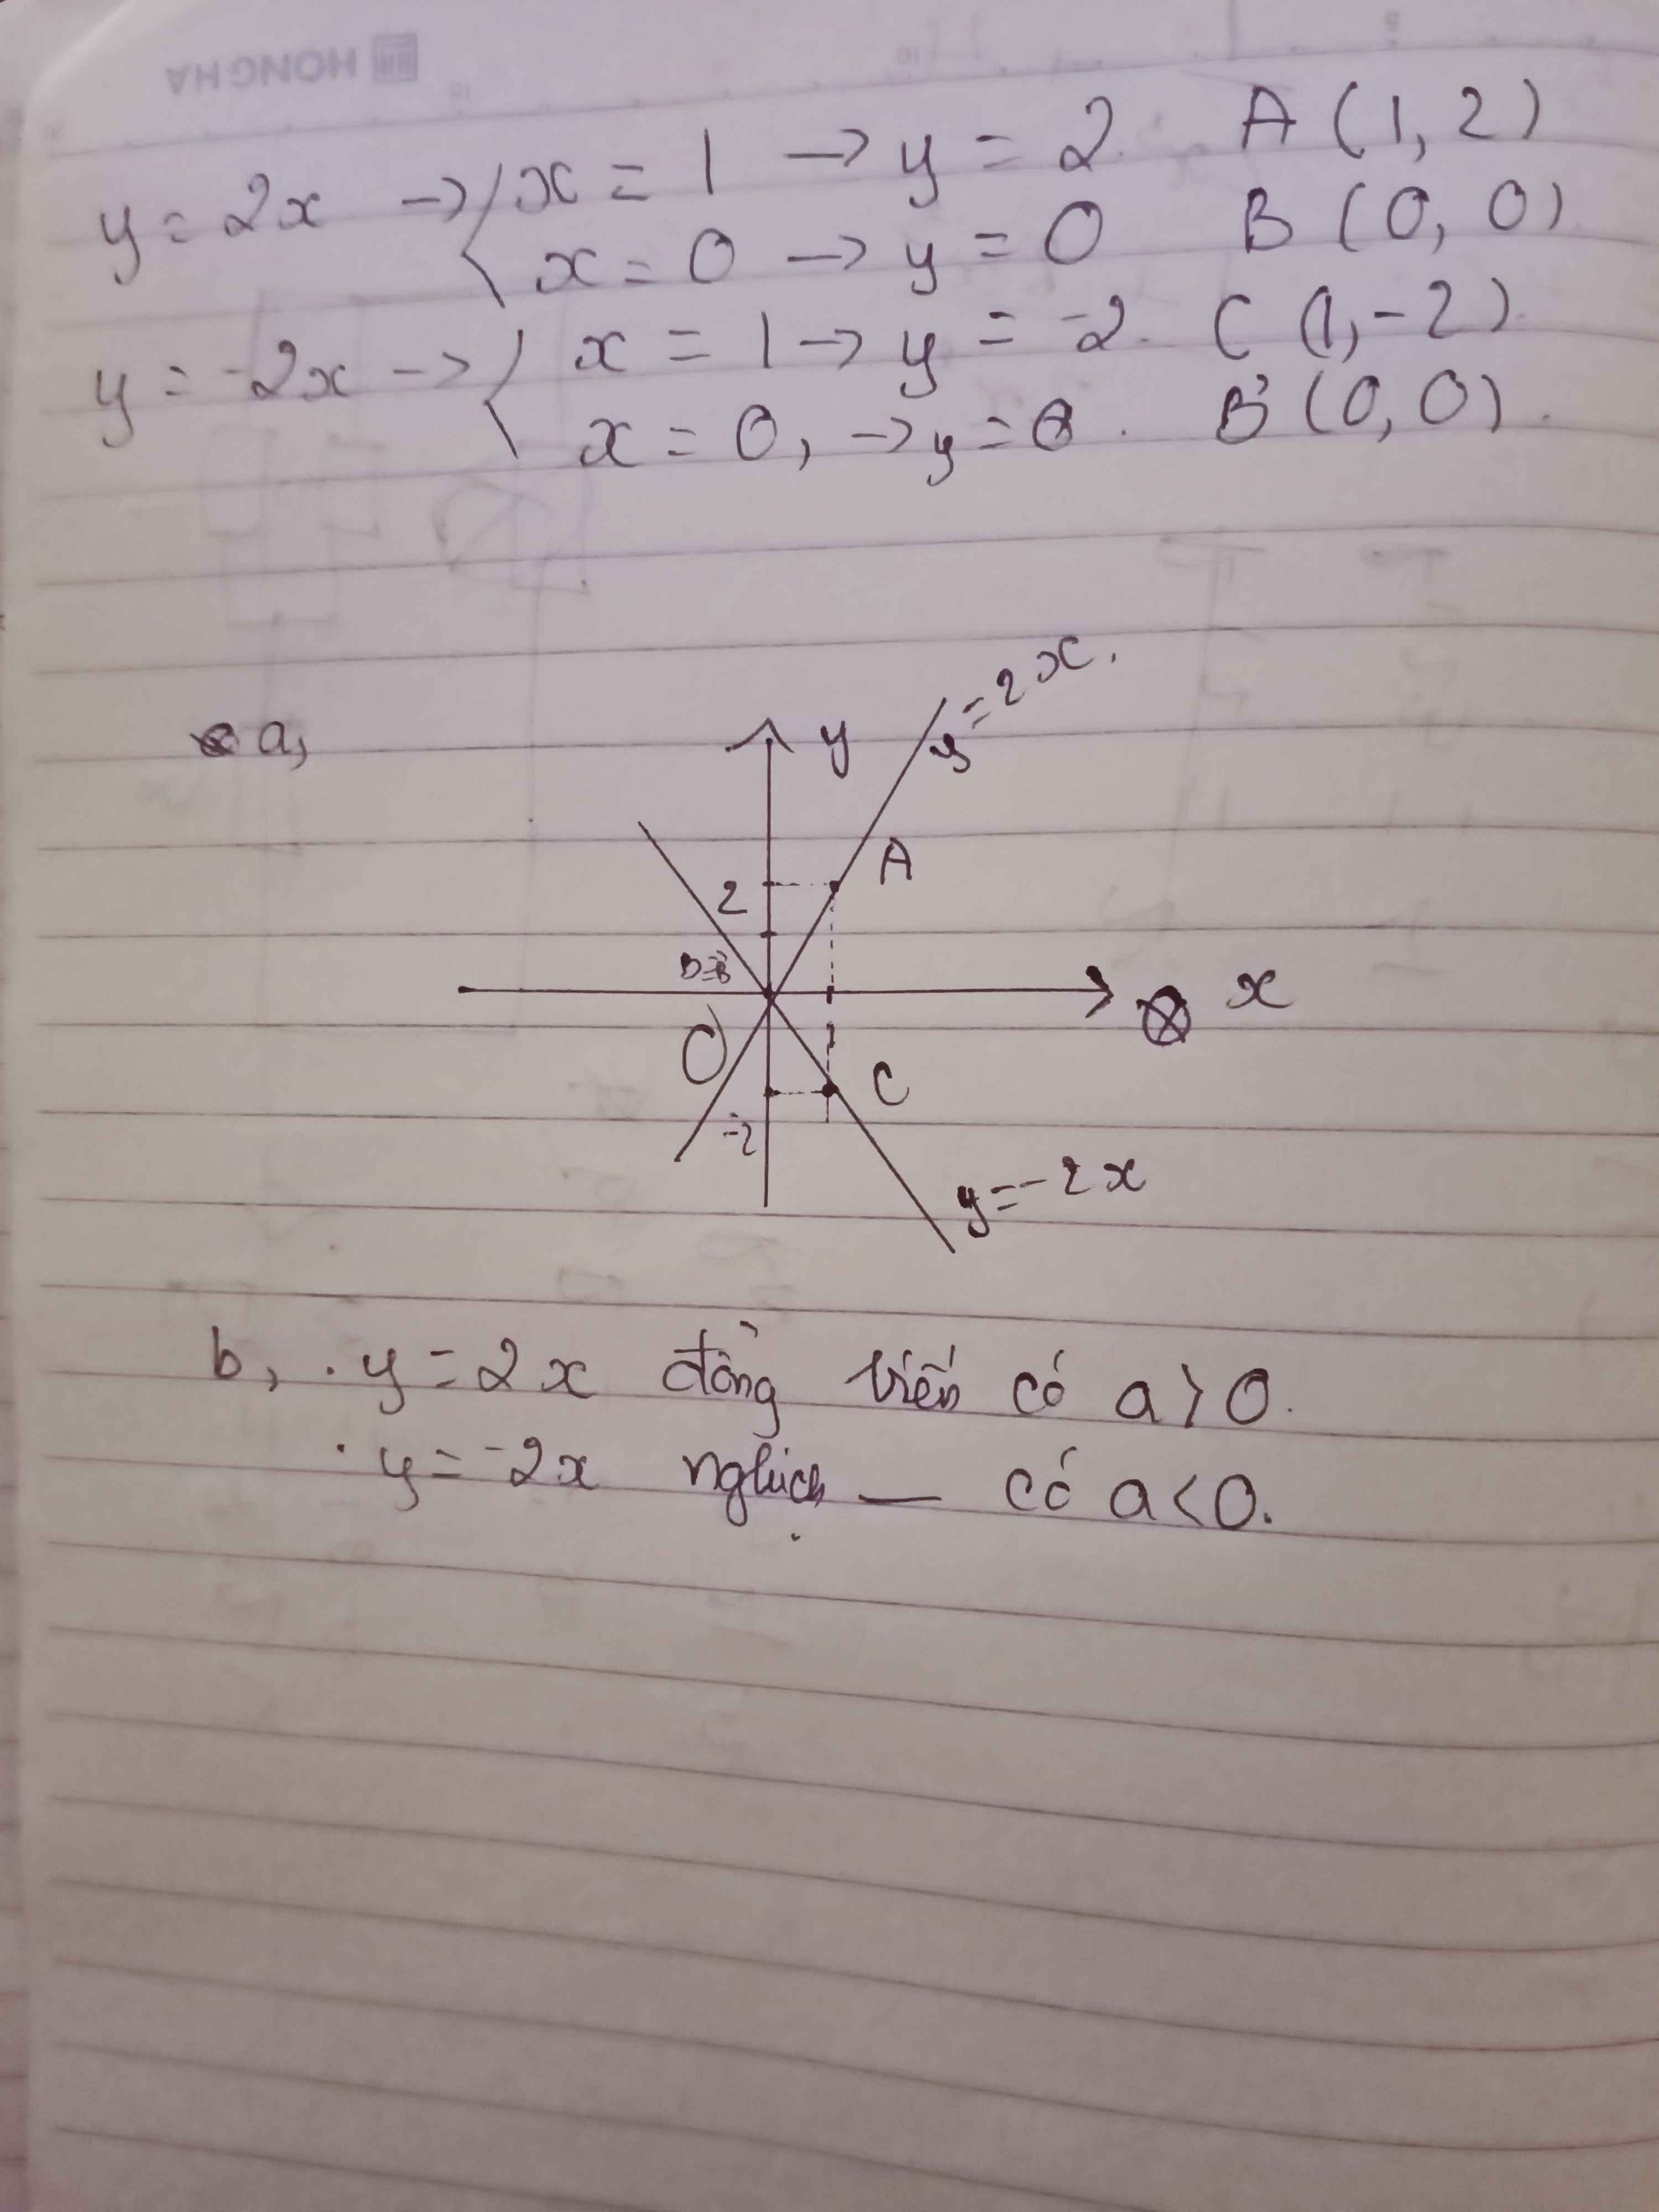 HONG HA
y = 2x → { x = 1 → y = 2. A (1, 2)
x = 0 → y = 0 B (0, 0)
y = -2x → { x = 1 → y = -2. C (1, -2)
x = 0, → y = 0. B' (0, 0).
a,
y = 2x.
y
A
2
B≡B'
x
O
1
C
-2
y = -2x
b, . y = 2x đồng biến có a > 0.
. y = -2x nghịch — có a < 0.